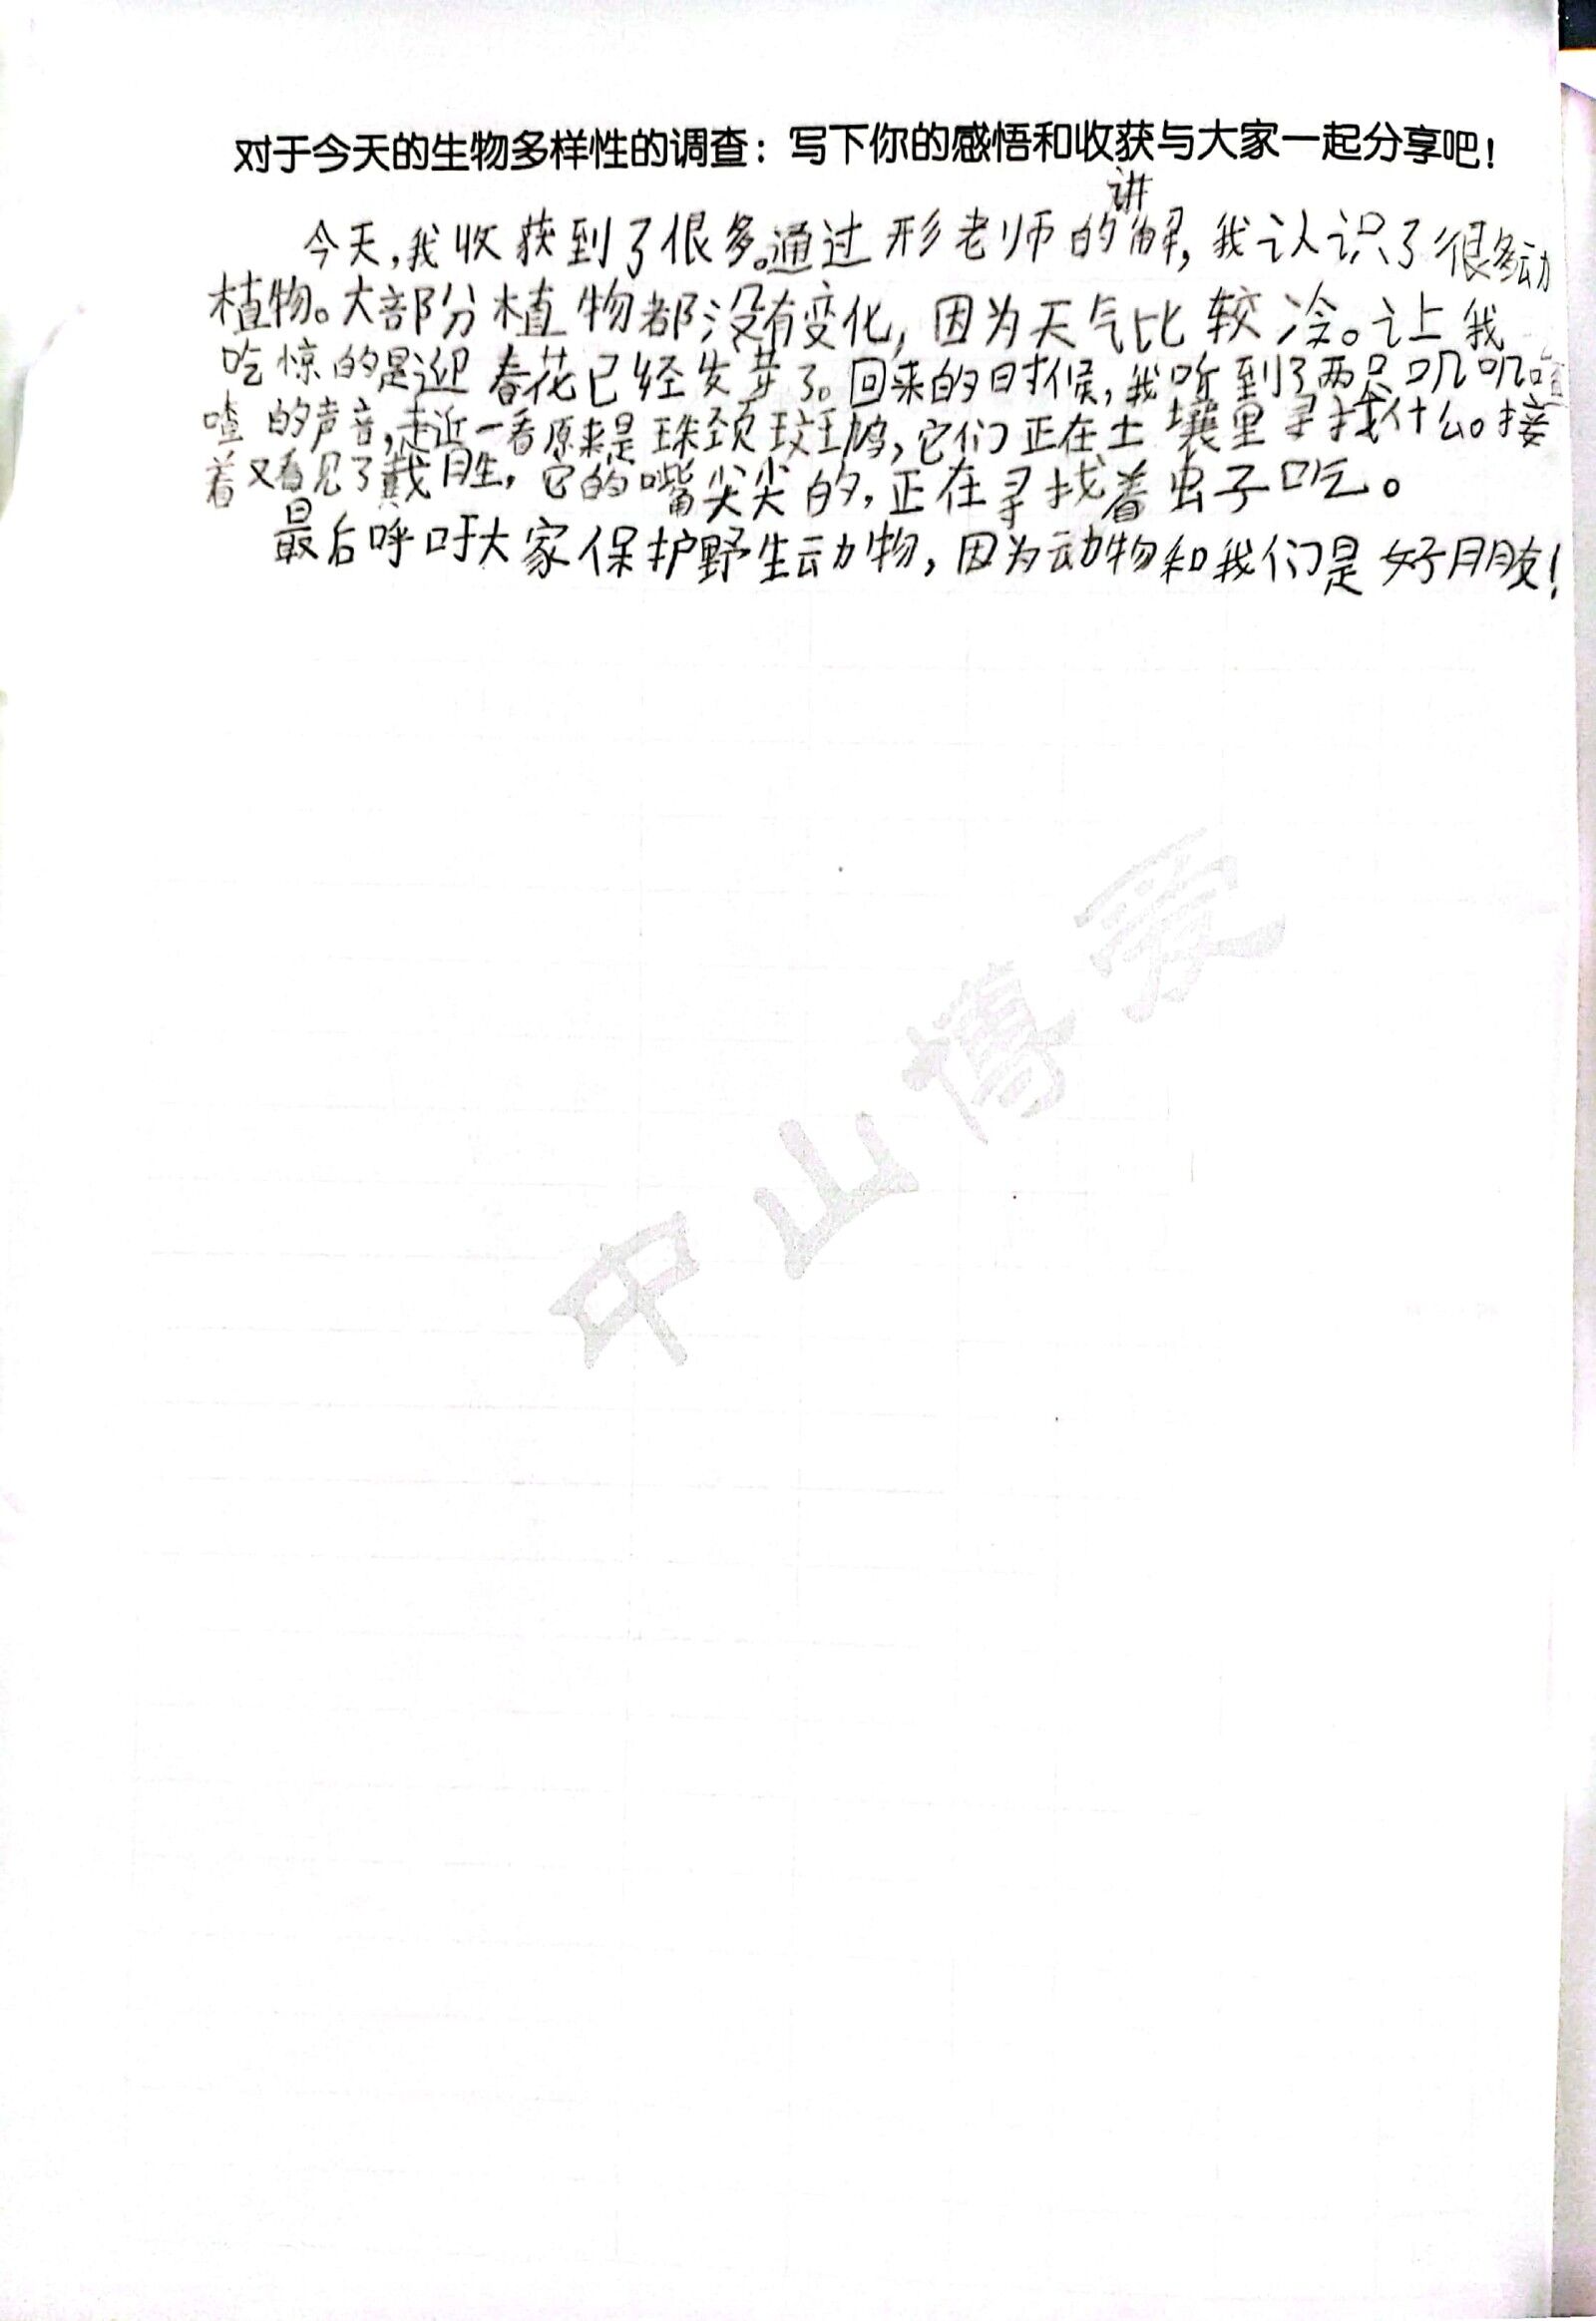 对于今天的生物多样性的调查：写下你的感悟和收获与大家一起分享吧！
今天,我收获到了很多。通过形老师的讲解,我认识了很多动
植物。大部分植物都没有变化,因为天气比较冷。让我
吃惊的是迎春花已经发芽了。回来的时候,我听到了两只叽叽喳
喳的声音,走近一看原来是珠颈斑鸠,它们正在土壤里寻找什么。接
着又看见了戴胜,它的嘴尖尖的,正在寻找着虫子吃。
最后呼吁大家保护野生动物,因为动物和我们是好朋友!
中山博爱